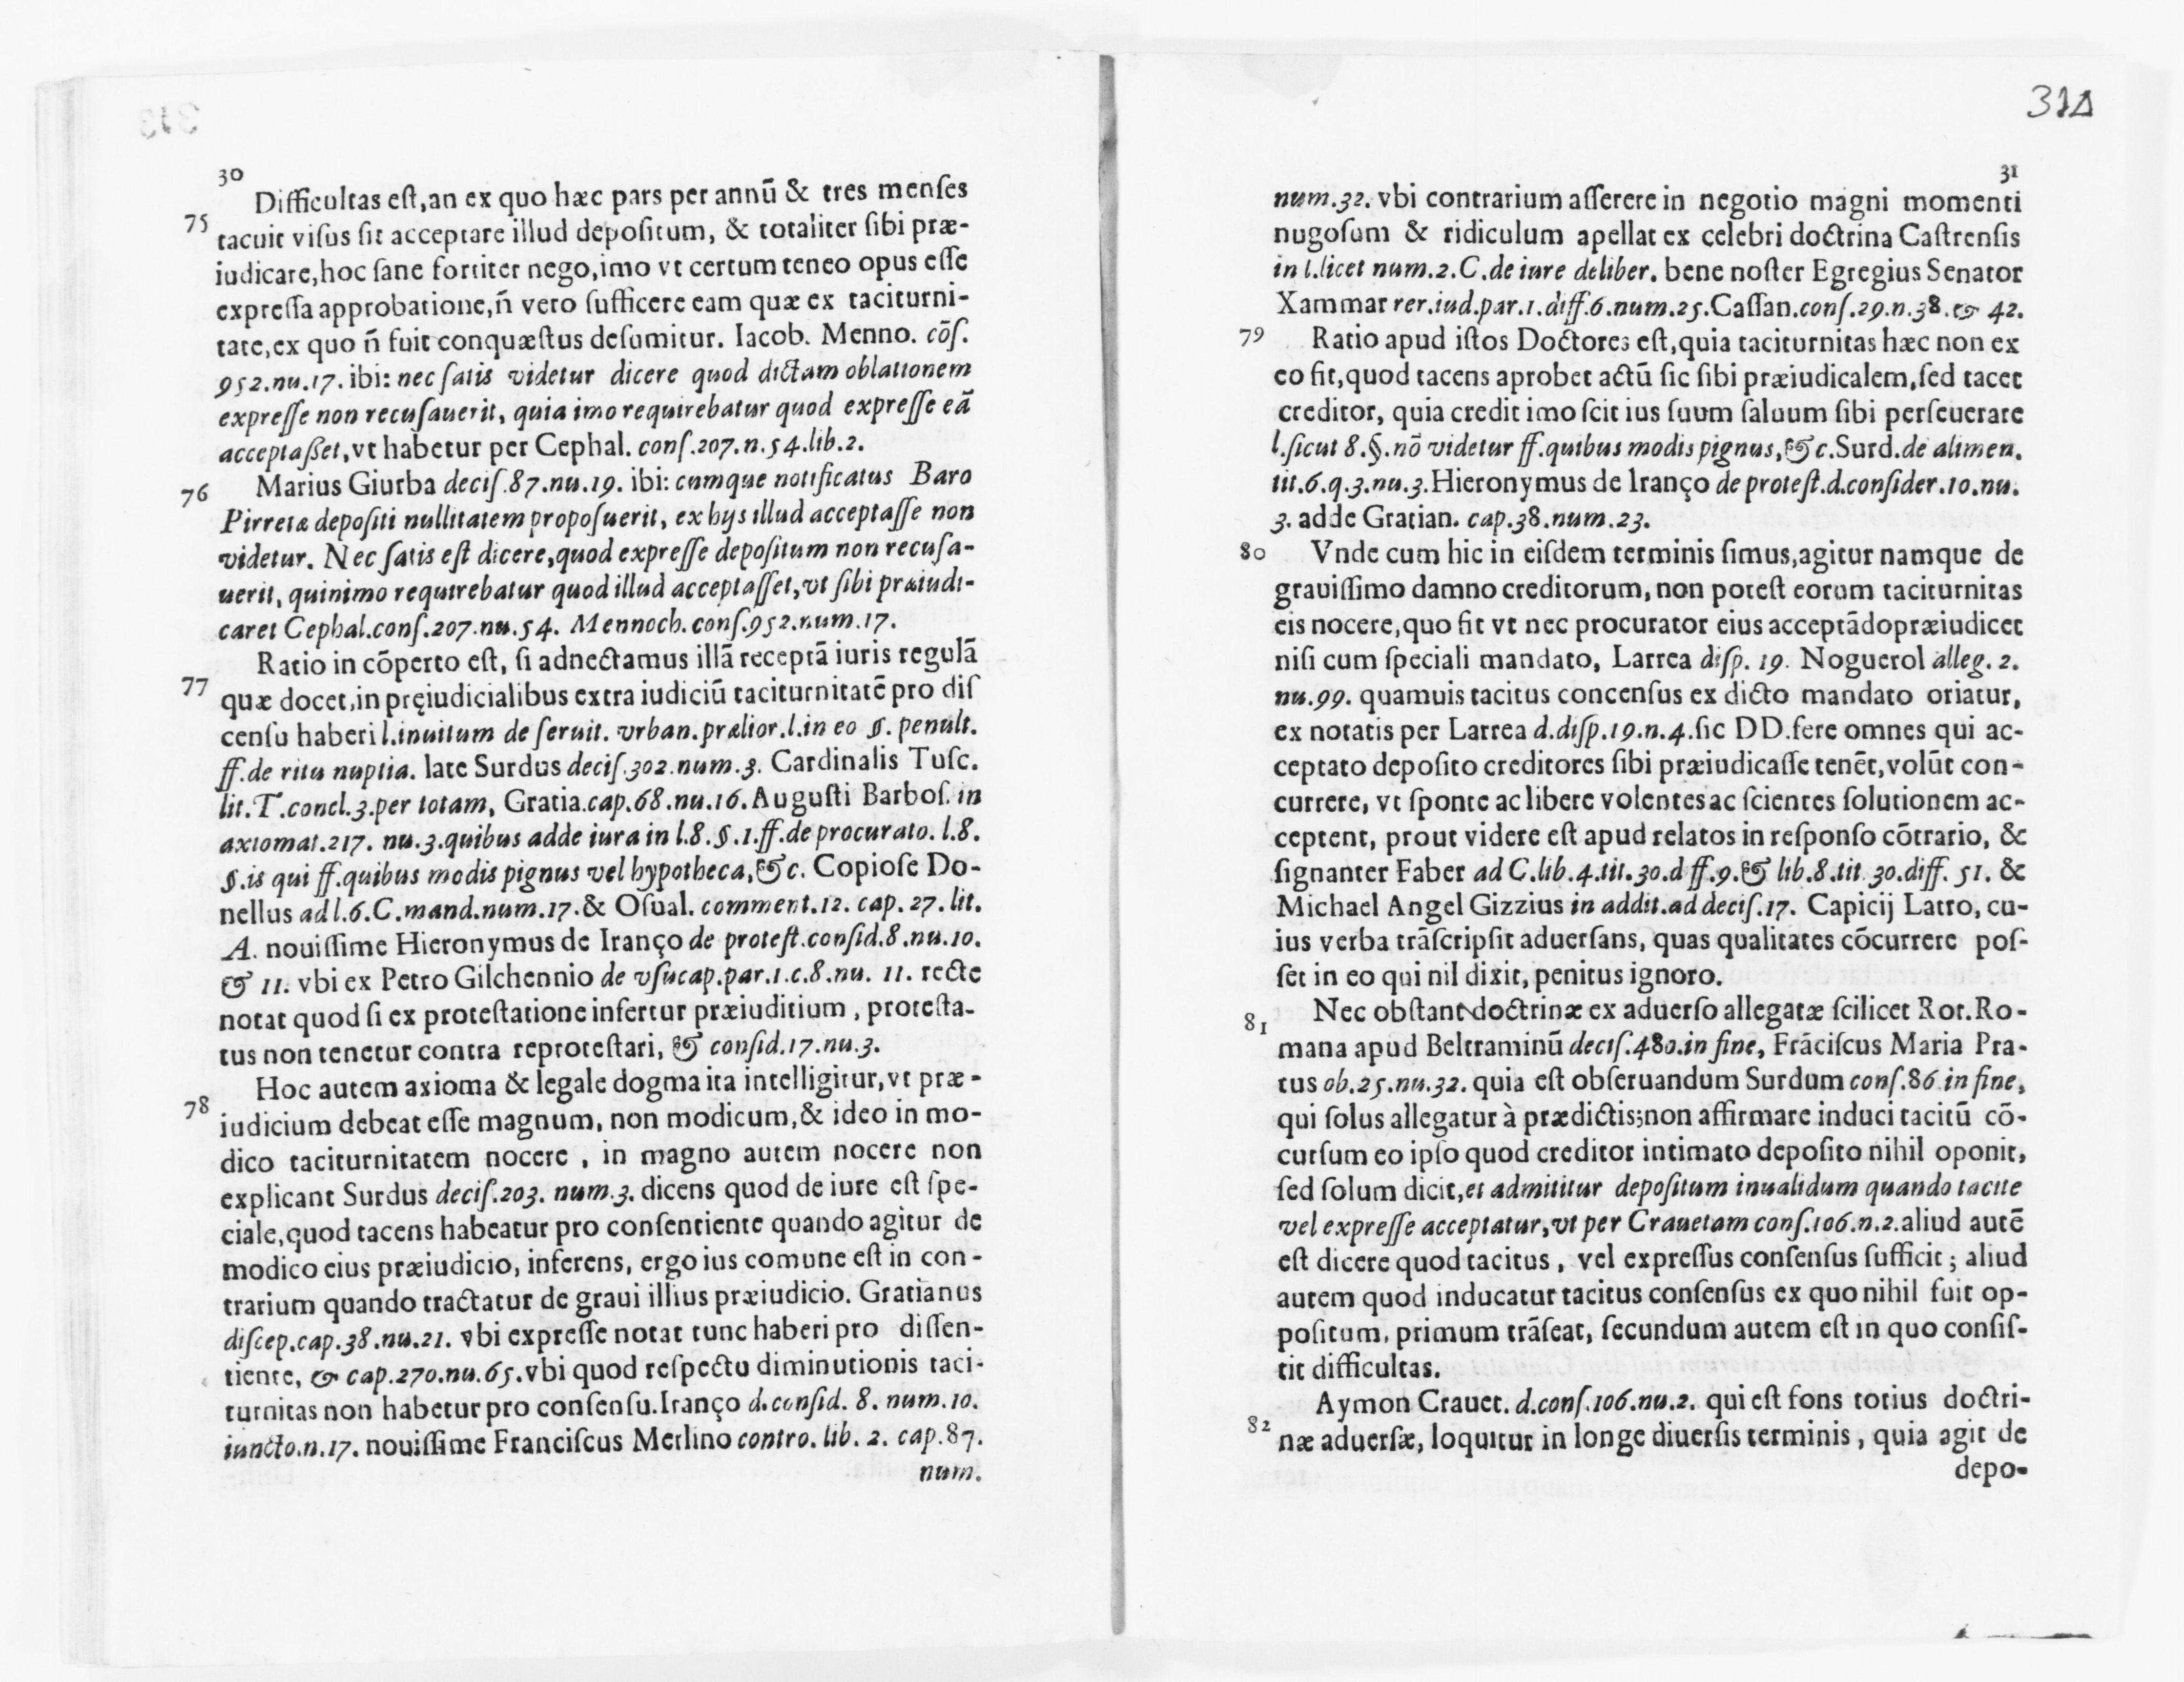 30
Difficultas eſt,an ex quo hæc pars per annũ & tres menſes
75 tacuit viſus ſit acceptare illud depoſitum, & totaliter ſibi præ-
iudicare,hoc ſane fortiter nego,imo vt certum teneo opus eſſe
expreſſa approbatione,ñ vero ſufficere eam quæ ex taciturni-
tate,ex quo ñ fuit conquæſtus deſumitur. Iacob. Menno. cõſ.
952.nu.17. ibi: nec ſatis videtur dicere quod dictam oblationem
expreſſe non recuſauerit, quia imo requirebatur quod expreſſe eã
acceptaßet,vt habetur per Cephal. conſ.207.n.54.lib.2.
76 Marius Giurba deciſ.87.nu.19. ibi: cumque notificatus Baro
Pirretæ depoſiti nullitatem propoſuerit, ex hijs illud acceptaſſe non
videtur. Nec ſatis eſt dicere,quod expreſſe depoſitum non recuſa-
uerit, quinimo requirebatur quod illud acceptaſſet,vt ſibi præiudi-
caret Cephal.conſ.207.nu.54. Mennoch.conſ.952.num.17.
Ratio in cõperto eſt, ſi adnectamus illã receptã iuris regulã
77 quæ docet,in pręiudicialibus extra iudiciũ taciturnitatẽ pro diſ
cenſu haberi l.inuitum de ſeruit. vrban.prælior.l.in eo §. penult.
ff.de ritu nuptia. late Surdus deciſ.302.num.3. Cardinalis Tuſc.
lit.T.concl.3.per totam, Gratia.cap.68.nu.16.Auguſti Barboſ.in
axiomat.217. nu.3.quibus adde iura in l.8.§.1.ff.de procurato. l.8.
§.is qui ff.quibus modis pignus vel hypotheca,&c. Copioſe Do-
nellus ad l.6.C.mand.num.17.& Oſual. comment.12. cap. 27. lit.
A. nouiſſime Hieronymus de Iranço de proteſt.conſid.8.nu.10.
& 11. vbi ex Petro Gilchennio de vſucap.par.1.c.8.nu. 11. recte
notat quod ſi ex proteſtatione infertur præiuditium , proteſta-
tus non tenetur contra reproteſtari, & conſid.17.nu.3.
Hoc autem axioma & legale dogma ita intelligitur,vt præ-
78 iudicium debeat eſſe magnum, non modicum,& ideo in mo-
dico taciturnitatem nocere , in magno autem nocere non
explicant Surdus deciſ.203. num.3. dicens quod de iure eſt ſpe-
ciale,quod tacens habeatur pro conſentiente quando agitur de
modico eius præiudicio, inferens, ergo ius comune eſt in con-
trarium quando tractatur de graui illius præiudicio. Gratianus
diſcep.cap.38.nu.21. vbi expreſſe notat tunc haberi pro diſſen-
tiente, & cap.270.nu.65.vbi quod reſpectu diminutionis taci-
turnitas non habetur pro conſenſu.Iranço d.conſid. 8. num.10.
iuncto.n.17. nouiſſime Franciſcus Merlino contro. lib. 2. cap.87.
num.
314
31
num.32. vbi contrarium aſſerere in negotio magni momenti
nugoſum & ridiculum apellat ex celebri doctrina Caſtrenſis
in l.licet num.2.C.de iure deliber. bene noſter Egregius Senator
Xammar rer.iud.par.1.diff.6.num.25.Caſſan.conſ.29.n.38.& 42.
79 Ratio apud iſtos Doctores eſt,quia taciturnitas hæc non ex
eo fit,quod tacens aprobet actũ ſic ſibi præiudicalem,ſed tacet
creditor, quia credit imo ſcit ius ſuum ſaluum ſibi perſeuerare
l.ſicut 8.§.nõ videtur ff.quibus modis pignus,&c.Surd.de alimen.
tit.6.q.3.nu.3.Hieronymus de Iranço de proteſt.d.conſider.10.nu.
3. adde Gratian. cap.38.num.23.
80 Vnde cum hic in eiſdem terminis ſimus,agitur namque de
grauiſſimo damno creditorum, non poteſt eorum taciturnitas
eis nocere,quo fit vt nec procurator eius acceptãdopræiudicet
niſi cum ſpeciali mandato, Larrea diſp. 19. Noguerol alleg. 2.
nu.99. quamuis tacitus concenſus ex dicto mandato oriatur,
ex notatis per Larrea d.diſp.19.n.4.ſic DD.fere omnes qui ac-
ceptato depoſito creditores ſibi præiudicaſſe tenẽt,volũt con-
currere, vt ſponte ac libere volentes ac ſcientes ſolutionem ac-
ceptent, prout videre eſt apud relatos in reſponſo cõtrario, &
ſignanter Faber ad C.lib.4.tit.30.d ff.9.& lib.8.tit.30.diff. 51. &
Michael Angel Gizzius in addit.ad deciſ.17. Capicij Latro, cu-
ius verba trãſcripſit aduerſans, quas qualitates cõcurrere poſ-
ſet in eo qui nil dixit, penitus ignoro.
81 Nec obſtant doctrinæ ex aduerſo allegatæ ſcilicet Rot.Ro-
mana apud Beltraminũ deciſ.480.in fine, Frãciſcus Maria Pra-
tus ob.25.nu.32. quia eſt obſeruandum Surdum conſ.86.in fine,
qui ſolus allegatur à prædictis;non affirmare induci tacitũ cõ-
curſum eo ipſo quod creditor intimato depoſito nihil oponit,
ſed ſolum dicit,et admititur depoſitum inualidum quando tacite
vel expreſſe acceptatur,vt per Crauetam conſ.106.n.2.aliud autẽ
eſt dicere quod tacitus , vel expreſſus conſenſus ſufficit ; aliud
autem quod inducatur tacitus conſenſus ex quo nihil fuit op-
poſitum, primum trãſeat, ſecundum autem eſt in quo conſiſ-
tit difficultas.
Aymon Crauet. d.conſ.106.nu.2. qui eſt fons totius doctri-
82 næ aduerſæ, loquitur in longe diuerſis terminis , quia agit de
depo-